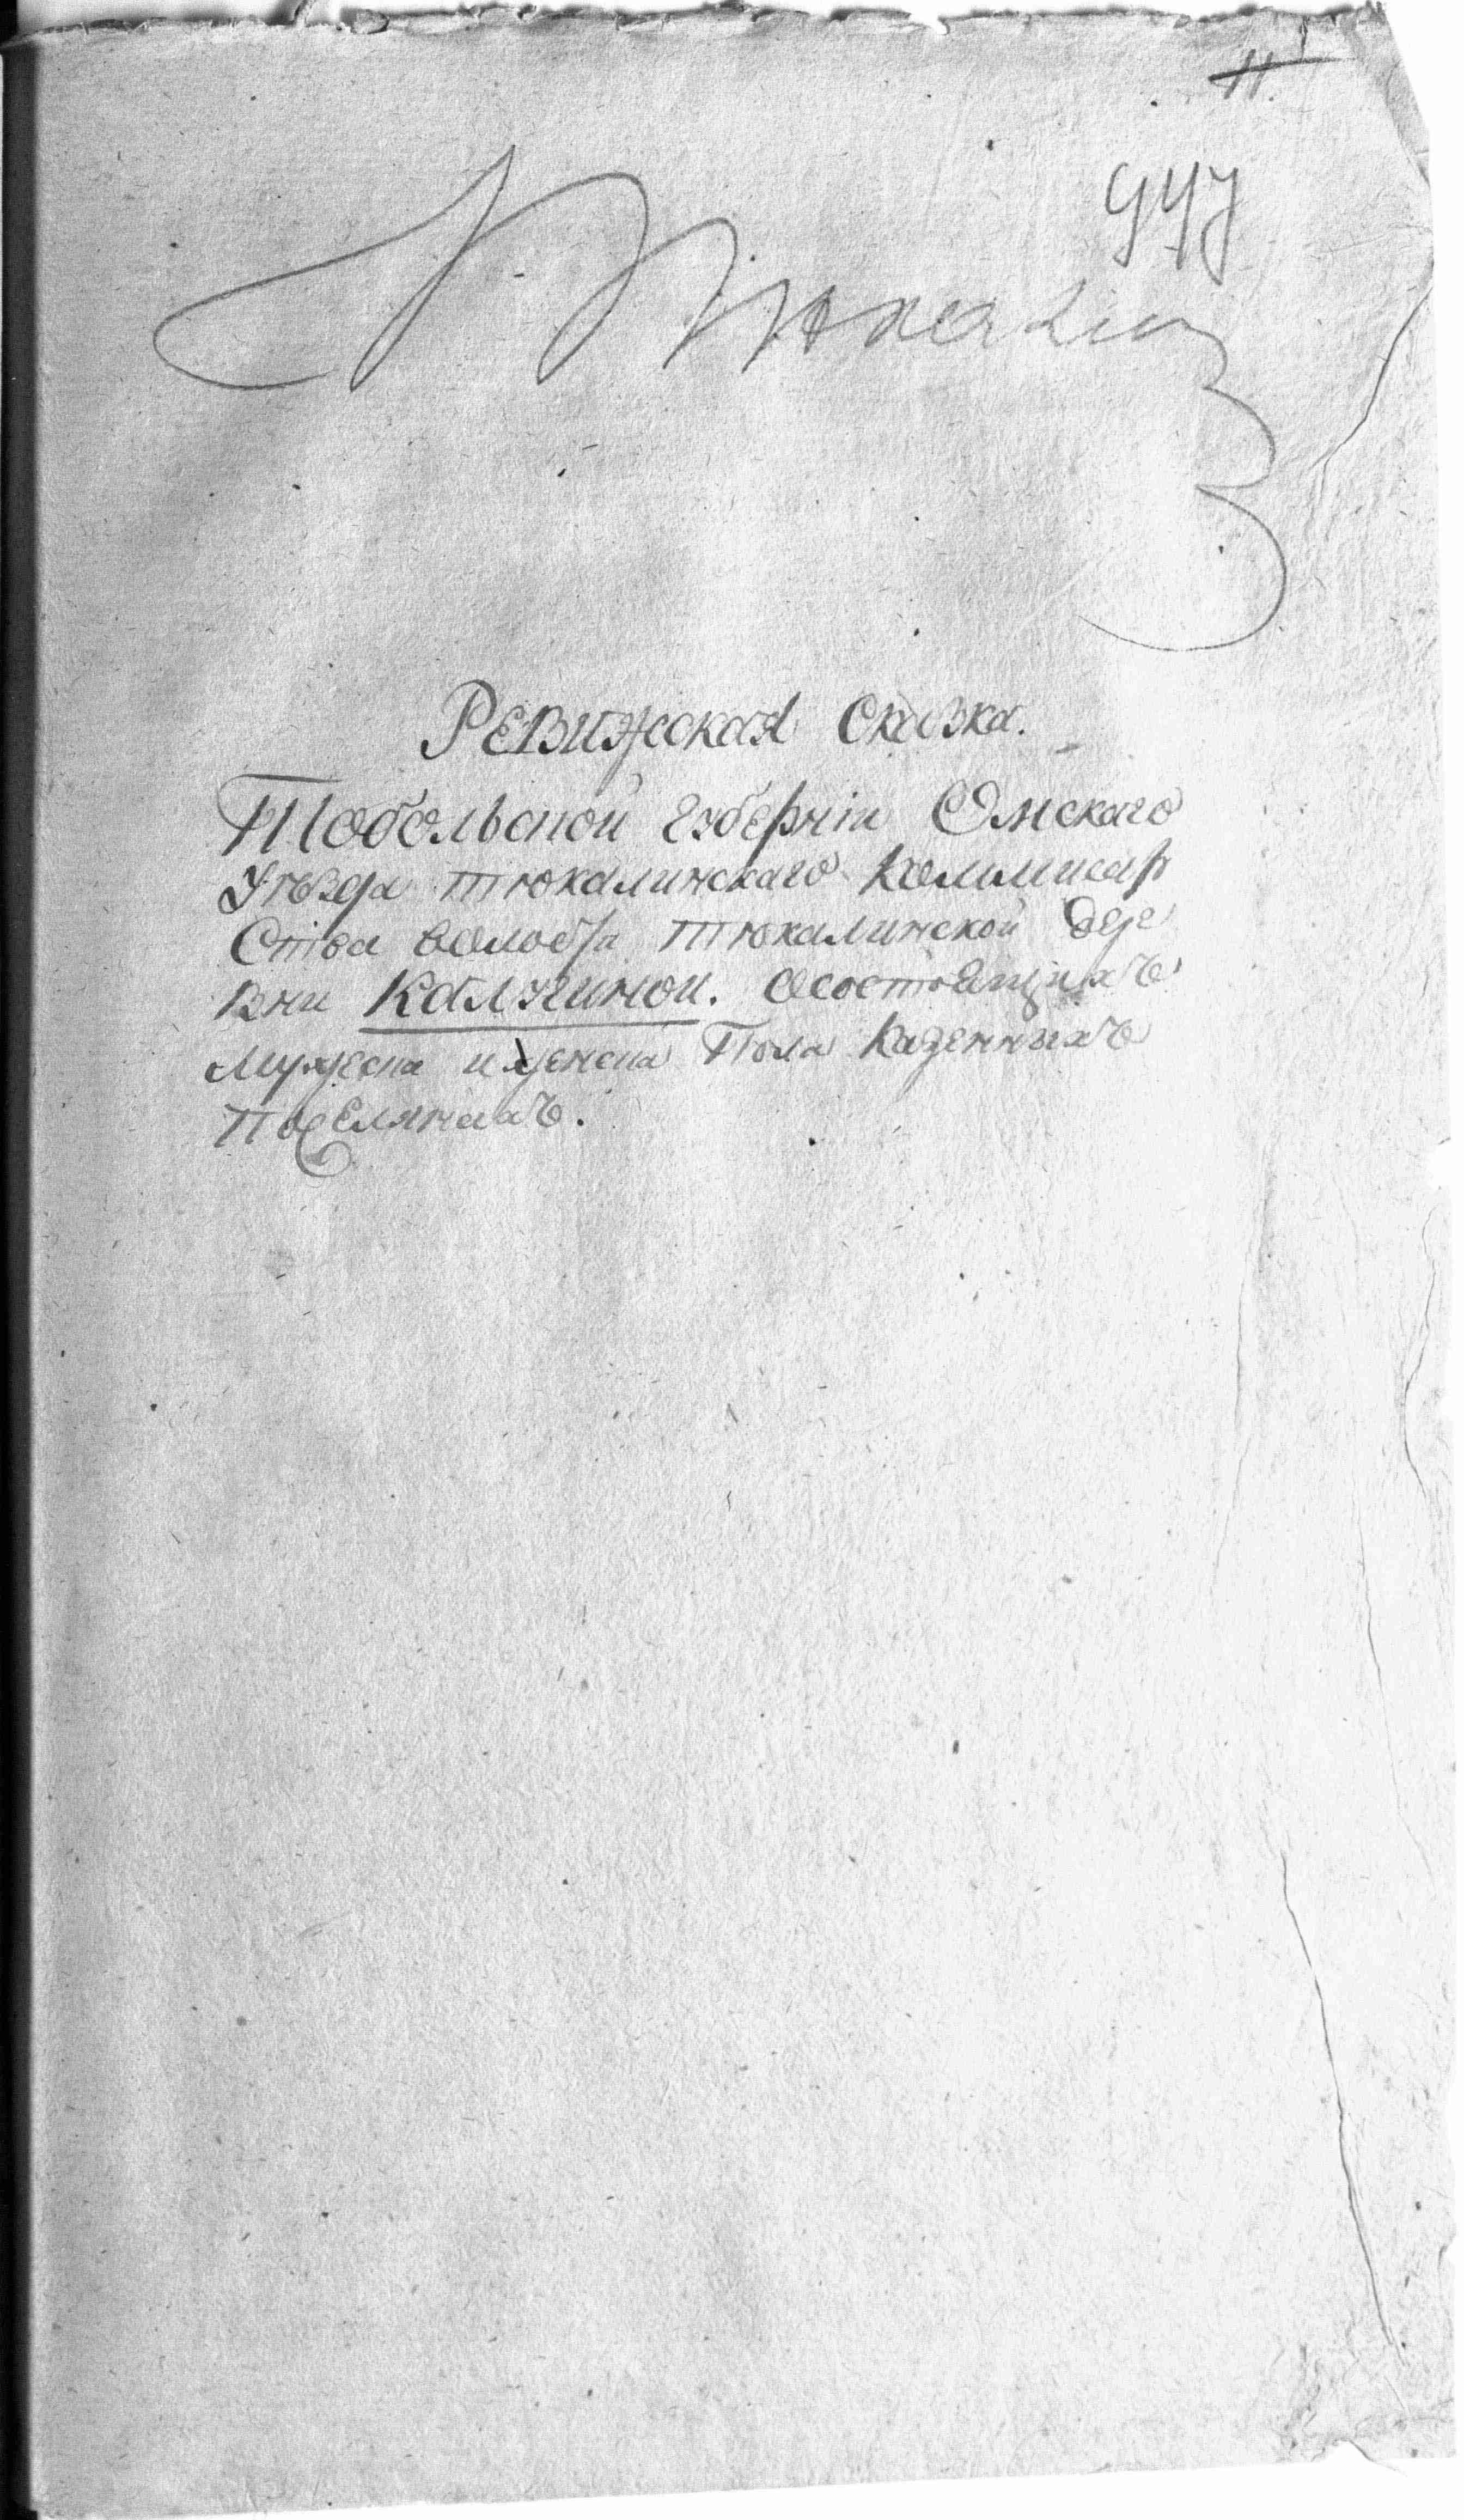 11.
947
Ревижская Сказка.
Тобольской губерніи Омскаго
Уѣзда Тюкалинскаго Коммисар
Ства волости Тюкалинской дере
вни Калугиной. Осостоящихъ
Мужеска и женска Пола Казенныхъ
Поселянахъ.